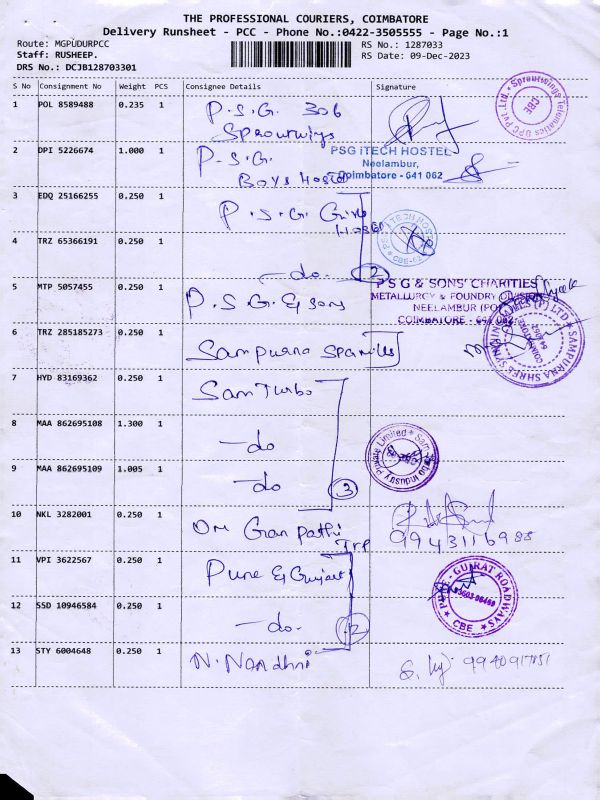 THE PROFESSIONAL COURIERS, COIMBATORE
Delivery Runsheet - PCC - Phone No.:0422-3505555 - Page No.:1
Route: MGPUDURPCC
RS No.: 1287033
Staff: RUSHEEP.
RS Date: 09-Dec-2023
DRS No.: DCJB128703301
S No Consignment No Weight PCS Consignee Details Signature
1 POL 8589488 0.235 1 P.S.G. 306
Sproutwings
2 DPI 5226674 1.000 1 P.S.G.
Boys Hostel
PSG iTECH HOSTEL
Neelambur,
Coimbatore - 641 062
3 EDQ 25166255 0.250 1 P.S.G. Girls
Hostel
4 TRZ 65366191 0.250 1 -do. 2
5 MTP 5057455 0.250 1 P.S.G. & Sons
P S G & SONS' CHARITIES
METALLURGY & FOUNDRY DIVISION
NEELAMBUR (PO)
COIMBATORE - 641 062
6 TRZ 285185273 0.250 1 Sampurna Spamills
7 HYD 83169362 0.250 1 Sam Turbo
8 MAA 862695108 1.300 1 -do
9 MAA 862695109 1.005 1 -do 3
10 NKL 3282001 0.250 1 Om Ganpathi
Trp
9943116988
11 VPI 3622567 0.250 1 Pune & Gujarat
PUNE - GUJRAT ROADWAYS
CBE
12 SSD 10946584 0.250 1 -do. 2
13 STY 6004648 0.250 1 N. Nandhni